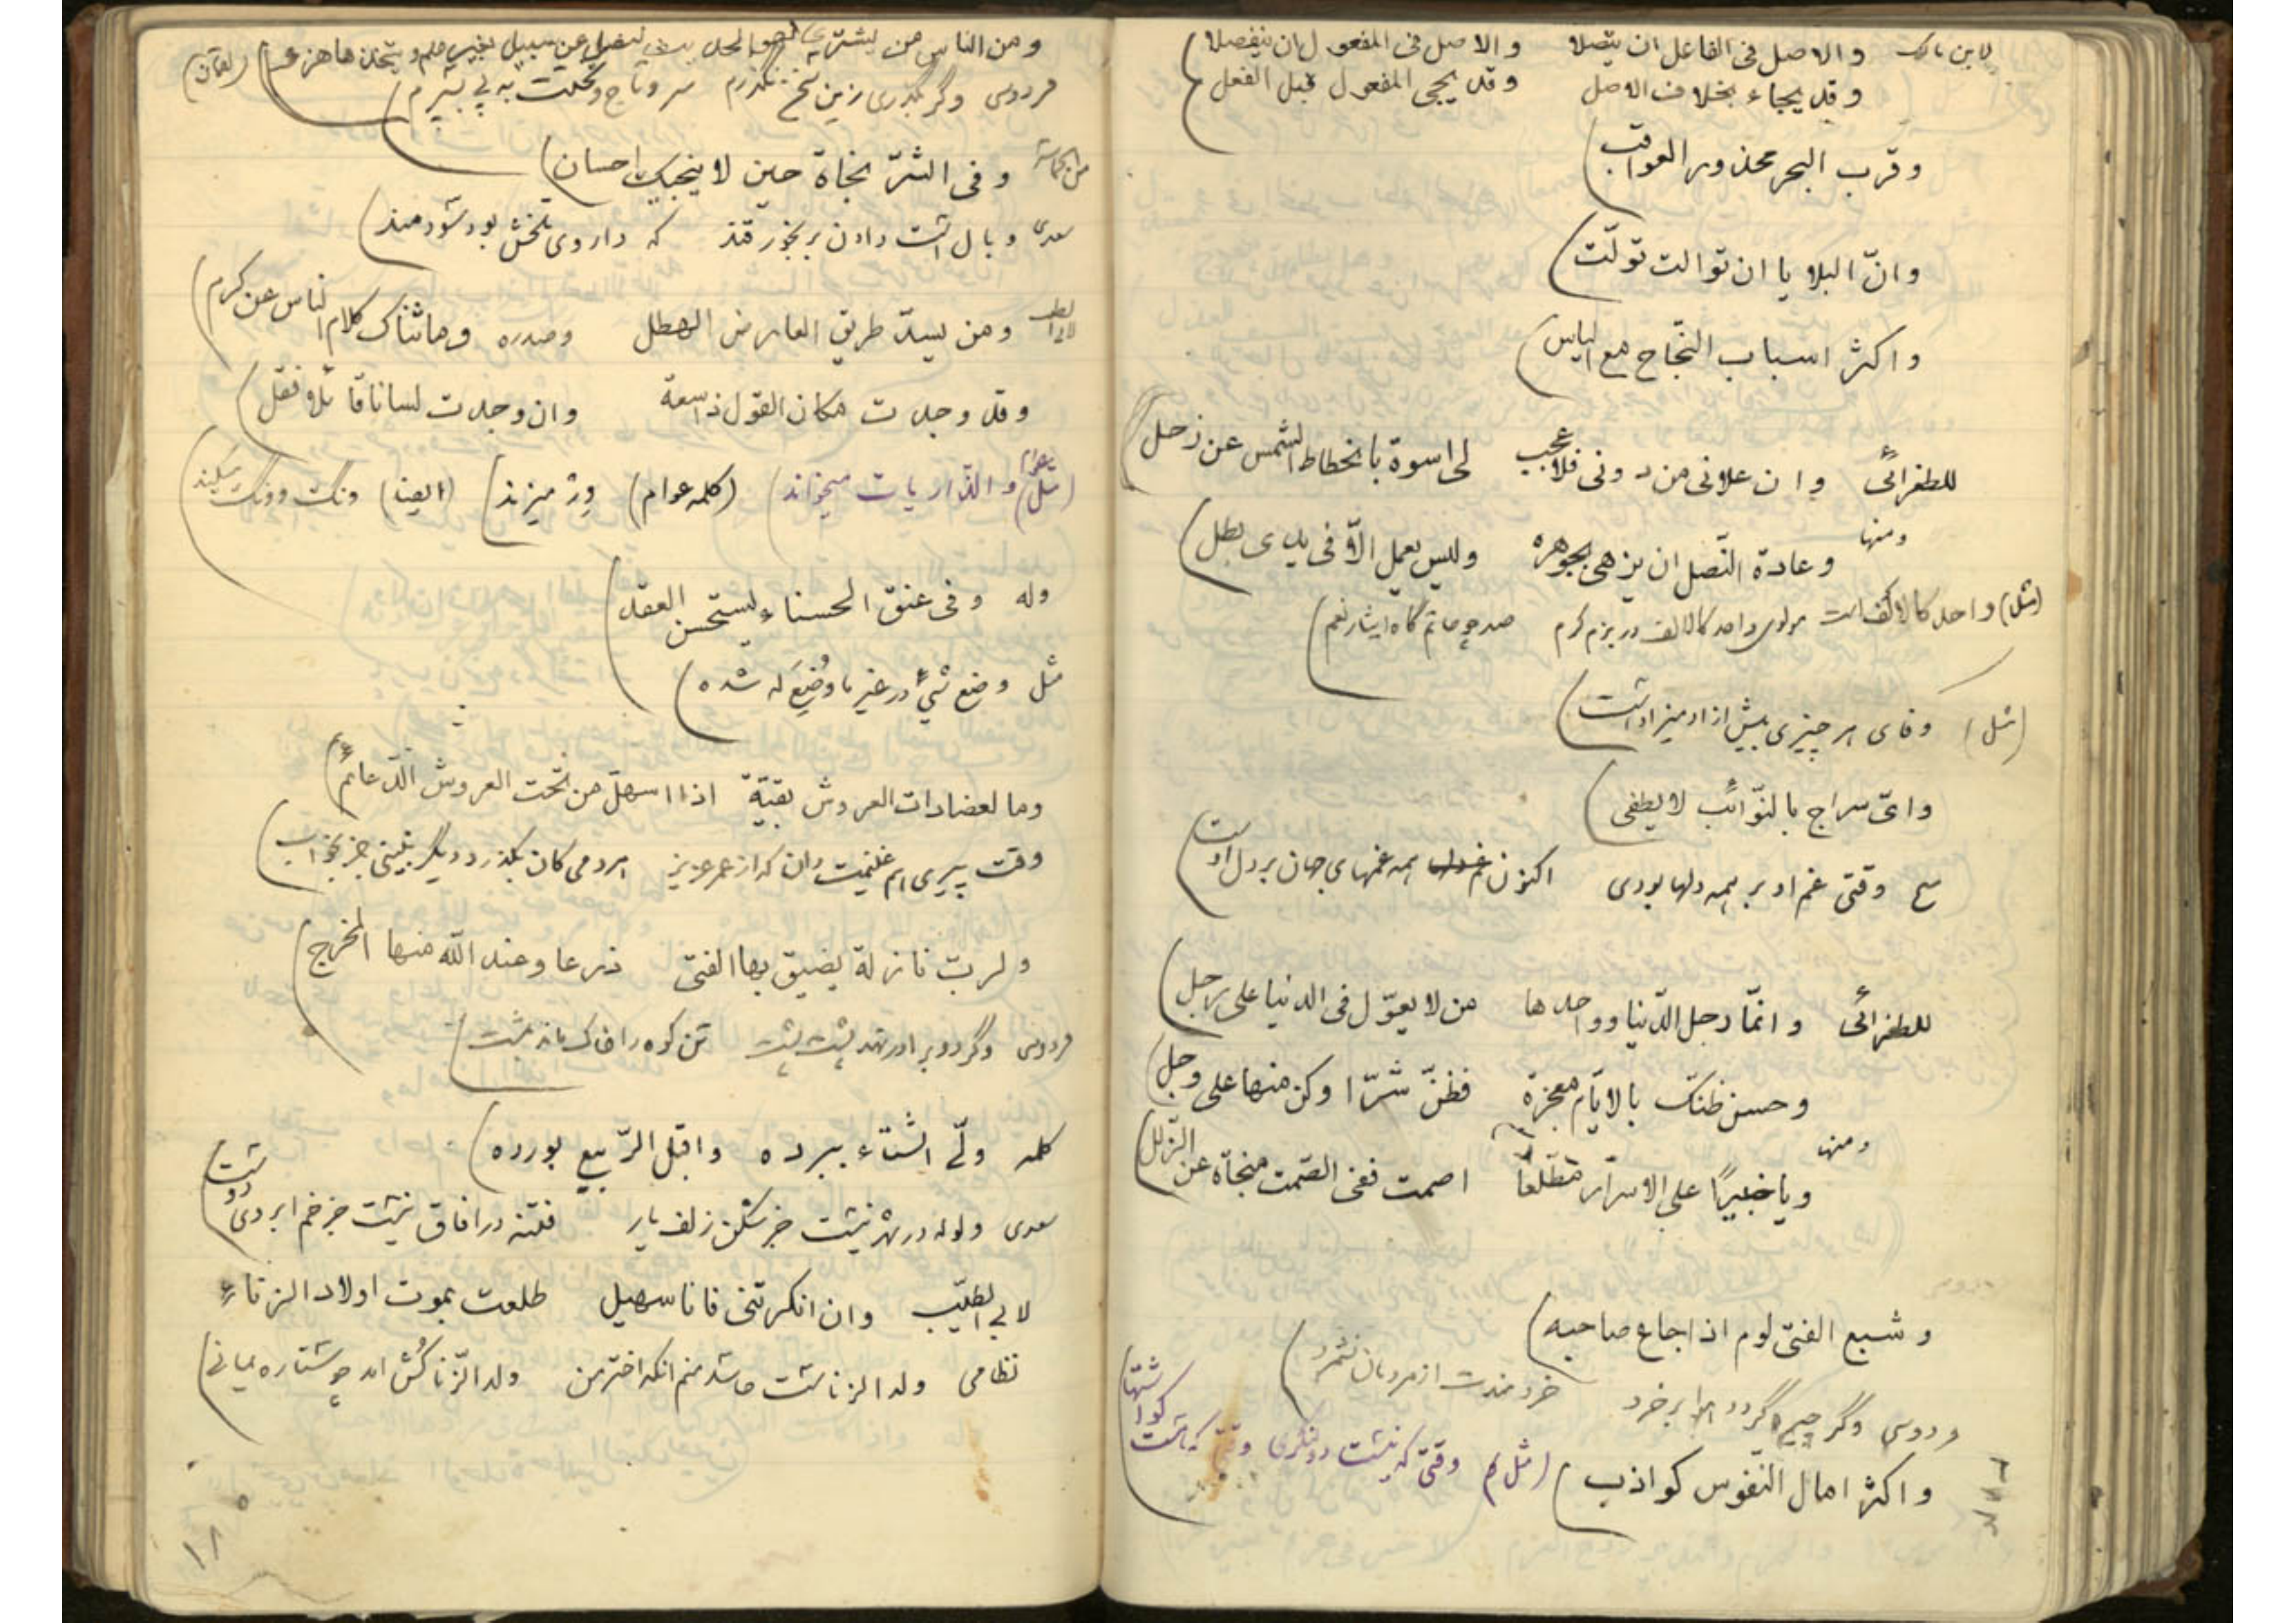 لابن مالک والاصل فی الفاعل ان یتصلا والاصل فی المفعول ان ینفصلا
وقد یجاء بخلاف الاصل وقد یجی المفعول قبل الفعل
وقرب البحر محذور العواقب
وانّ البلایا ان توالت تولّت
واکثر اسباب النّجاح مع الیاس
للطغرائی وان علانی من دونی فلا عجب لی اسوة بانحطاط الشمس عن زحل
ومنها وعادة النّصل ان یزهی بجوهره ولیس یعمل الّا فی یدی بطل
(مثل) واحد کالالف است مولوی واحد کالالف در بزم کرم صد چو حاتم گاه ایثار نعم
(مثل) وفای هر چیزی بیش از ادمیزاد است
وایّ سراج بالنّوائب لا یطفی
وقتی غم او بر همه دلها بودی اکنون همه غمهای جهان بر دل اوست
للطغرائی وانّما رجل الدّنیا وواحدها من لا یعوّل فی الدنیا علی رجل
وحسن ظنّک بالایّام معجزة فظنّ شرّا وکن منها علی وجل
ومنها ویا خبیرًا علی الاسرار مطّلعًا اصمت ففی الصّمت منجاة عن الزّلل
وشبع الفتی لوم اذا جاع صاحبه
فردوسی وگر چیره گردد هوا بر خرد خردمندت از مردمان نشمرد
واکثر امال النّفوس کواذب (مثل) وقتی که نیست وقتی که هست کو اشتها
ومن الناس من یشتری لهو الحدیث لیضل عن سبیل بغیر علم ویتخذها هزءا (لقمان)
فردوسی وگر بگذری زین سخن نگذرم سر و تاج و تختت به پی بسپرم
من الحماسة وفی الشرّ نجاة حین لا ینجیک احسان
سعدی وبال است دادن برنجور قند که داروی تلخش بود سودمند
لابی الطیب ومن یسدّ طریق العارض الهطل وصدره وما ثناک کلام الناس عن کرم
وقد وجدت مکان القول ذا سعة وان وجدت لسانا قائلا فقل
(مثل عوام) والذّاریات میخواند (کلمه عوام) وِز میزند (ایضا) ونگ وونگ میکند
وله وفی عنق الحسناء یستحسن العقد
مثل وضع شیء در غیر ما وُضِعَ له شده
وما لعضادات العروش بقیّة اذا استلّ من تحت العروش الدّعائم
وقت پیری هم غنیمت دان که از عمر عزیز هر دمی کان بگذرد دیگر نبینی جز بخواب
ولربّ نازلة یضیق بها الفتی ذرعا وعند الله منها المخرج
فردوسی وگر دو برادر نهد پشت پشت تن کوه را خاک ماند بمشت
کلمه ولّی الشّتاء ببرده واقبل الرّبیع بورده
سعدی ولوله در شهر نیست جز شکن زلف یار فتنه در افاق نیست جز خم ابروی دوست
لابی الطیّب وان انکرتنی فانا سهیل طلعت بموت اولاد الزناء
نظامی ولد الزناست حاسد منم انکه اختر من ولد الزّنا کُش امد چو ستاره یمانی
۱۸